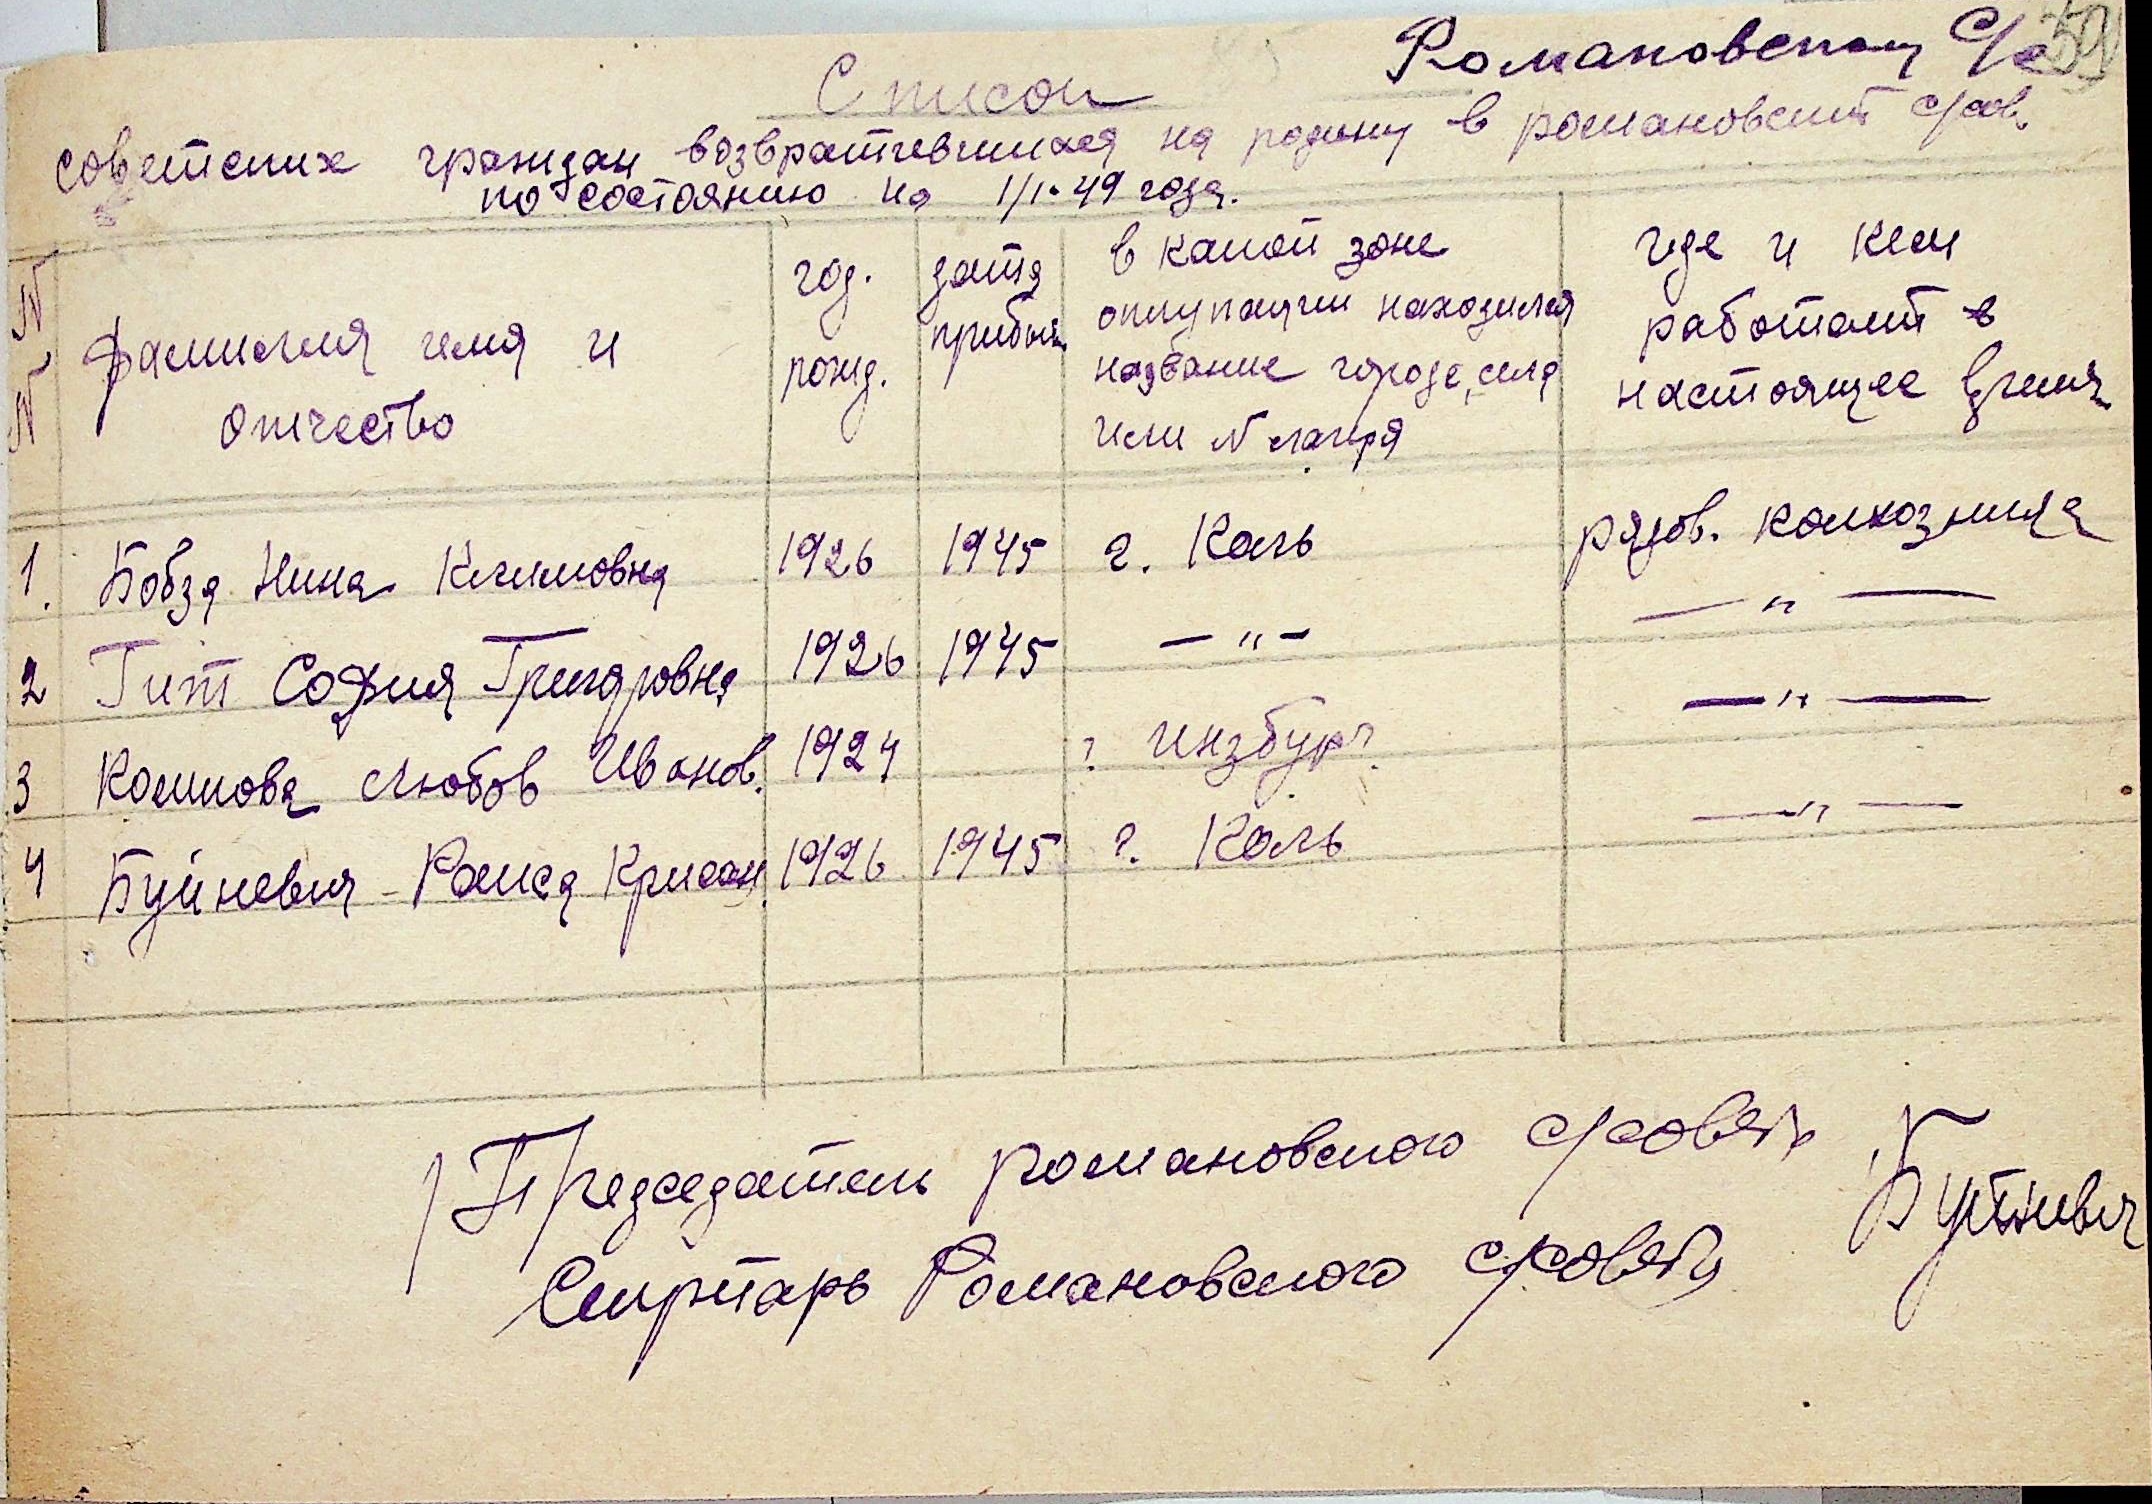 Романовском С/с
Список
советских граждан возвратившихся на родину в романовский с/сов.
по состоянию на 1/1-49 года.
N N
фамилия имя и отчество
год. рожд.
дата прибыт.
в какой зоне
оккупации находился
название города, села
или N лагеря
где и кем
работает в
настоящее время
1. Бобзя Нина Климовна 1926 1945 г. Каль рядов. колхозница
2 Гит София Григоровна 1926 1945 — " — — " —
3 Комкова Любов Иванов. 1924 г. Инзбург. — " —
4 Буйневич - Раиса Крисан. 1926 1945 г. Каль — " —
Председатель романовского с/совета
Буйневич
Секретарь Романовского с/совета